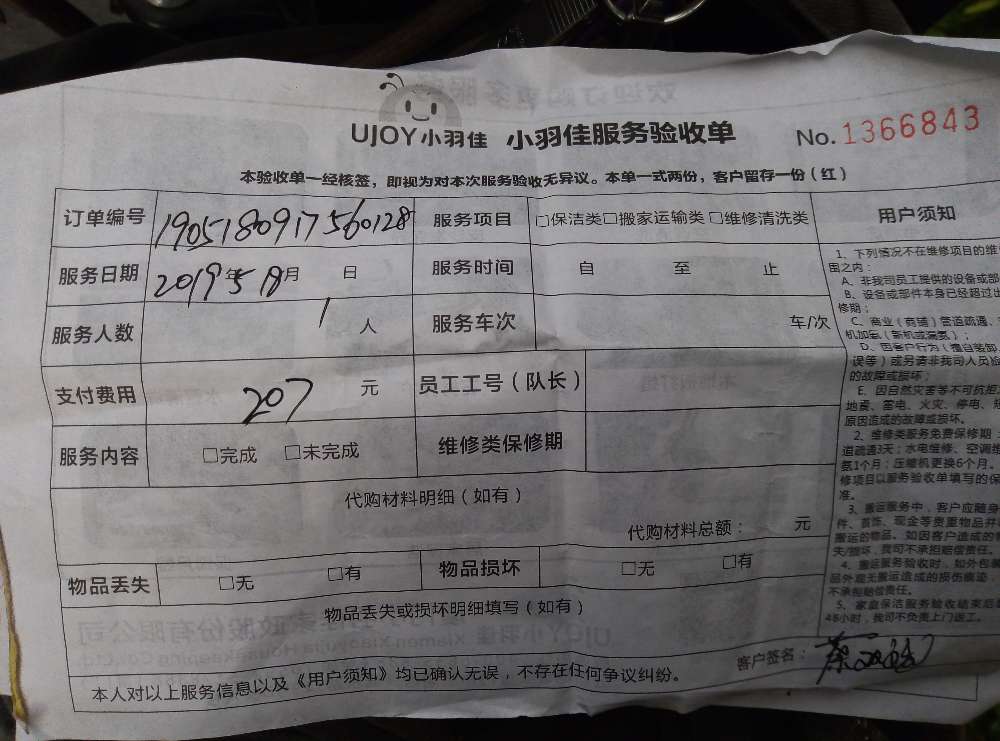 UJOY小羽佳 小羽佳服务验收单 No.1366843
本验收单一经核签，即视为对本次服务验收无异议。本单一式两份，客户留存一份（红）
订单编号 190518091756​0128 服务项目 □保洁类□搬家运输类 □维修清洗类
服务日期 2019年5月18日 服务时间 自 至 止
服务人数 1人 服务车次 车/次
支付费用 207 元 员工工号（队长）
服务内容 □完成 □未完成 维修类保修期
代购材料明细（如有）
代购材料总额： 元
物品丢失 □无 □有 物品损坏 □无 □有
物品丢失或损坏明细填写（如有）
本人对以上服务信息以及《用户须知》均已确认无误，不存在任何争议纠纷。
客户签名：
用户须知
1、下列情况不在维修项目的维
围之内：
A、非我司员工提供的设备或部
B、设备或部件本身已经超过
修期；
C、商业（商铺）管道疏通、
机加氨（新机或漏氨）；
D、因客户行为（擅自装卸
误等）或另请非我司人员
的故障或损坏；
E、因自然灾害等不可抗拒
地震、雷电、火灾、停电、
原因造成的故障或损坏。
2、维修类服务免费保修期：
道疏通3天；水电维修、空调
氨1个月；压缩机更换6个月。
修项目以服务验收单填写的保
准。
3、搬运服务中，客户应随身
件、首饰、现金等贵重物品并
搬运的物品。如因客户造成的
失/损坏，我司不承担赔偿责任。
4、搬运服务验收时，如外包装
品外观无搬运造成的损伤痕迹，
不承担赔偿责任。
5、家庭保洁服务验收结束后
48小时，我司不负责上门返工。